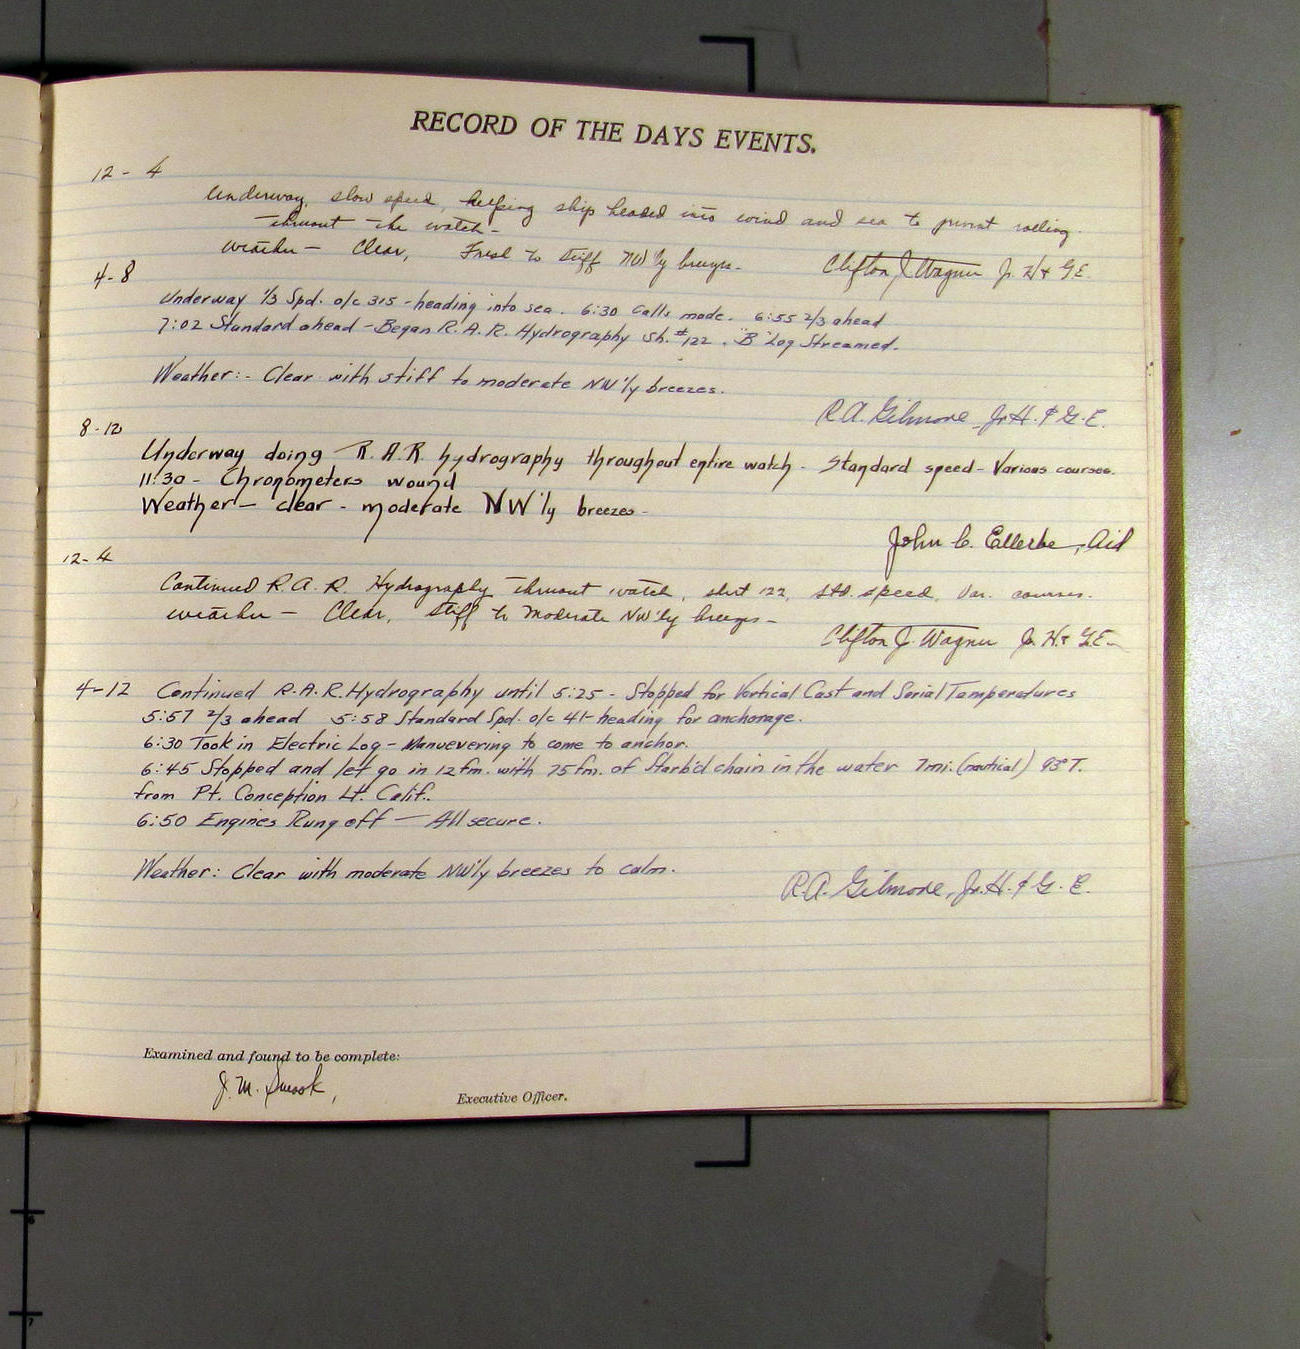 RECORD OF THE DAYS EVENTS.
12 - 4
Underway, slow speed, keeping ship headed into wind and sea to prevent rolling
thruout the watch -
Weather - Clear, Fresh to stiff NW'ly breezes.
Clifton J. Wagner Jr. H + G E.
4 - 8
Underway 1/3 Spd. o/c 315 - heading into sea. 6:30 Calls made. 6:55 2/3 ahead
7:02 Standard ahead - Began R.A.R. Hydrography Sh. #122. "B" Log Streamed.
Weather:- Clear with stiff to moderate NW'ly breezes.
R.A. Gilmore Jr. H. & G. E.
8 - 12
Underway doing R.A.R. hydrography throughout entire watch - Standard speed - Various courses.
11:30 - Chronometers wound
Weather - clear - moderate NW'ly breezes -
John C. Ellerbe, Aid
12 - 4
Continued R.A.R. Hydrography thruout watch, sheet 122, std. speed, Var. courses.
Weather - Clear, stiff to Moderate NW'ly breezes -
Clifton J. Wagner Jr. H. + G.E -
4-12 Continued R.A.R. Hydrography until 5:25 - Stopped for Vertical Cast and Serial Temperatures
5:57 2/3 ahead 5:58 Standard Spd. o/c 41- heading for anchorage.
6:30 Took in Electric Log - Manuevering to come to anchor.
6:45 Stopped and let go in 12 fm. with 75 fm. of Starb'd chain in the water 7 mi. (nautical) 93° T.
from Pt. Conception Lt. Calif.
6:50 Engines Rung off - All secure.
Weather: Clear with moderate NW'ly breezes to calm.
R.A. Gilmore, Jr. H. & G. E.
Examined and found to be complete:
J. M. Smook,
Executive Officer.
6
7